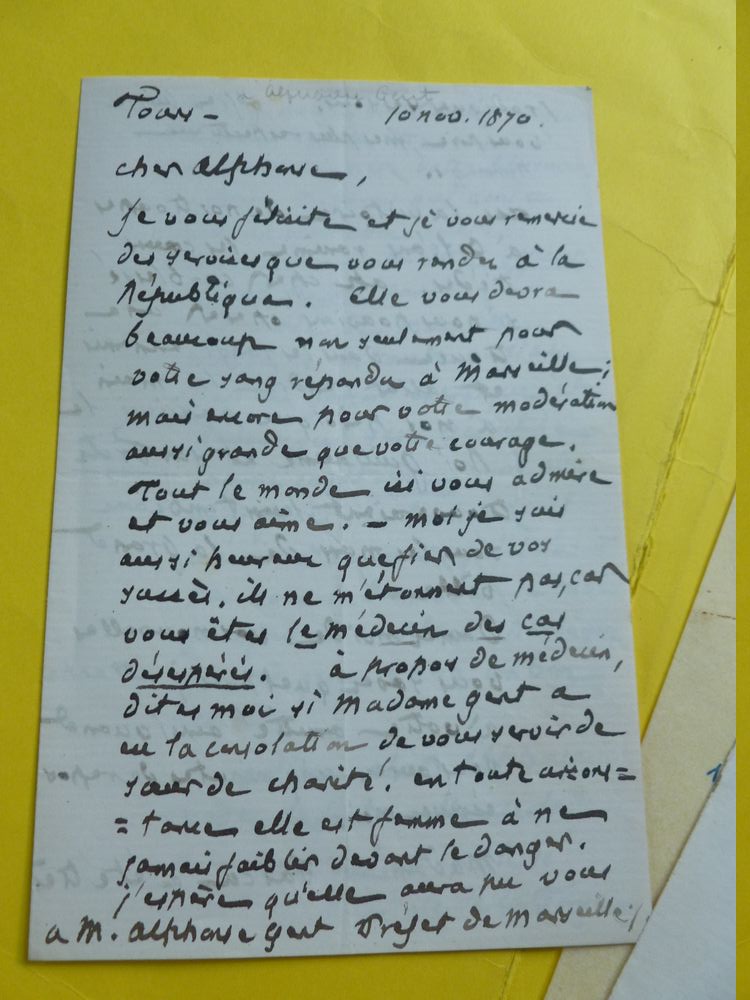 à Alphonse Gent
Tours – 10 nov. 1870.
cher Alphonse,
Je vous félicite et je vous remercie
des services que vous rendez à la
République. Elle vous devra
beaucoup non seulement pour
votre sang répandu à Marseille;
mais encore pour votre modération
aussi grande que votre courage.
Tout le monde ici vous admire
et vous aime. – moi je suis
aussi heureux que fier de vos
succès. ils ne m'étonnent pas, car
vous êtes le médecin des cas
désespérés. à propos de médecin,
dites moi si Madame gent a
eu la consolation de vous servir de
sœur de charité. en toute circons=
=tance elle est femme à ne
jamais faiblir devant le danger.
j'espère qu'elle aura pu vous
a M. alphonse gent Préfet de Marseille